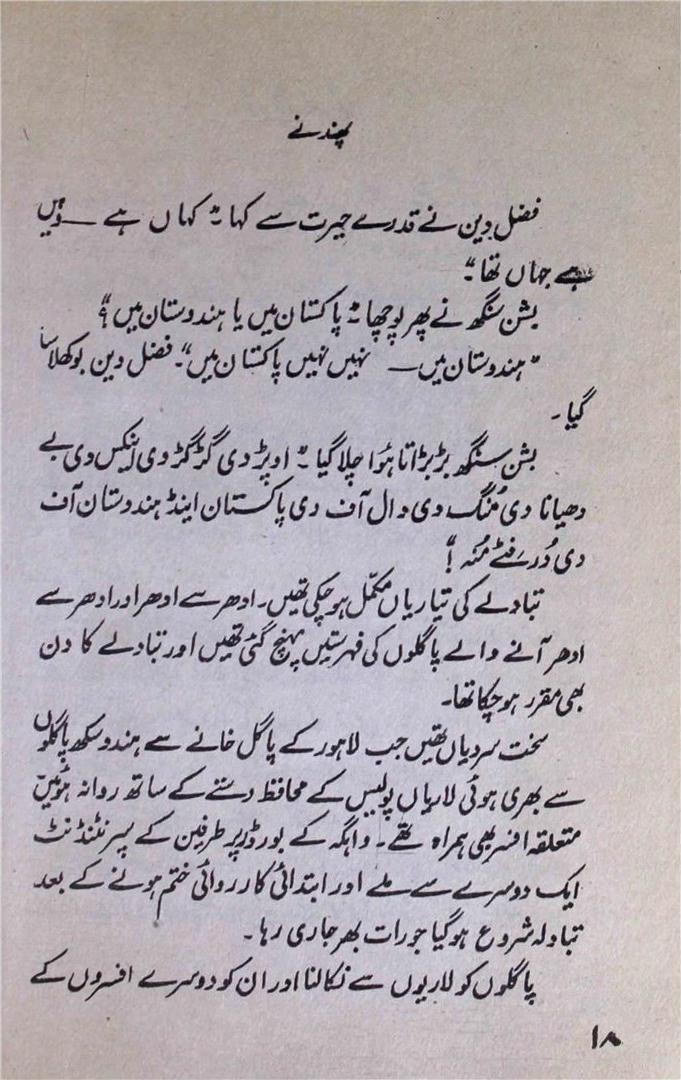 پھندنے
فضل دین نے قدرے حیرت سے کہا۔ "کہاں ہے — وہیں
ہے جہاں تھا"۔
بشن سنگھ نے پھر پوچھا۔ "پاکستان میں یا ہندوستان میں؟"
"ہندوستان میں — نہیں نہیں پاکستان میں"۔ فضل دین بوکھلا سا
گیا۔
بشن سنگھ بڑبڑاتا ہُوا چلا گیا۔ "اوپڑ دی گڑ گڑ دی اینکس دی بے
دھیانا دی مُنگ دی دال آف دی پاکستان اینڈ ہندوستان آف
دی دُر فٹے مُنہ!"
تبادلے کی تیاریاں مکمّل ہو چکی تھیں۔ ادھر سے ادھر اور ادھر سے
ادھر آنے والے پاگلوں کی فہرستیں پہنچ گئی تھیں اور تبادلے کا دن
بھی مقرر ہو چکا تھا۔
سخت سردیاں تھیں جب لاہور کے پاگل خانے سے ہندو سکھ پاگلوں
سے بھری ہوئی لاریاں پولیس کے محافظ دستے کے ساتھ روانہ ہوئیں
متعلقہ افسر بھی ہمراہ تھے۔ واہگہ کے بورڈر پر طرفین کے سپرنٹنڈنٹ
ایک دوسرے سے ملے اور ابتدائی کارروائی ختم ہونے کے بعد
تبادلہ شروع ہو گیا جو رات بھر جاری رہا۔
پاگلوں کو لاریوں سے نکالنا اور ان کو دوسرے افسروں کے
۱۸